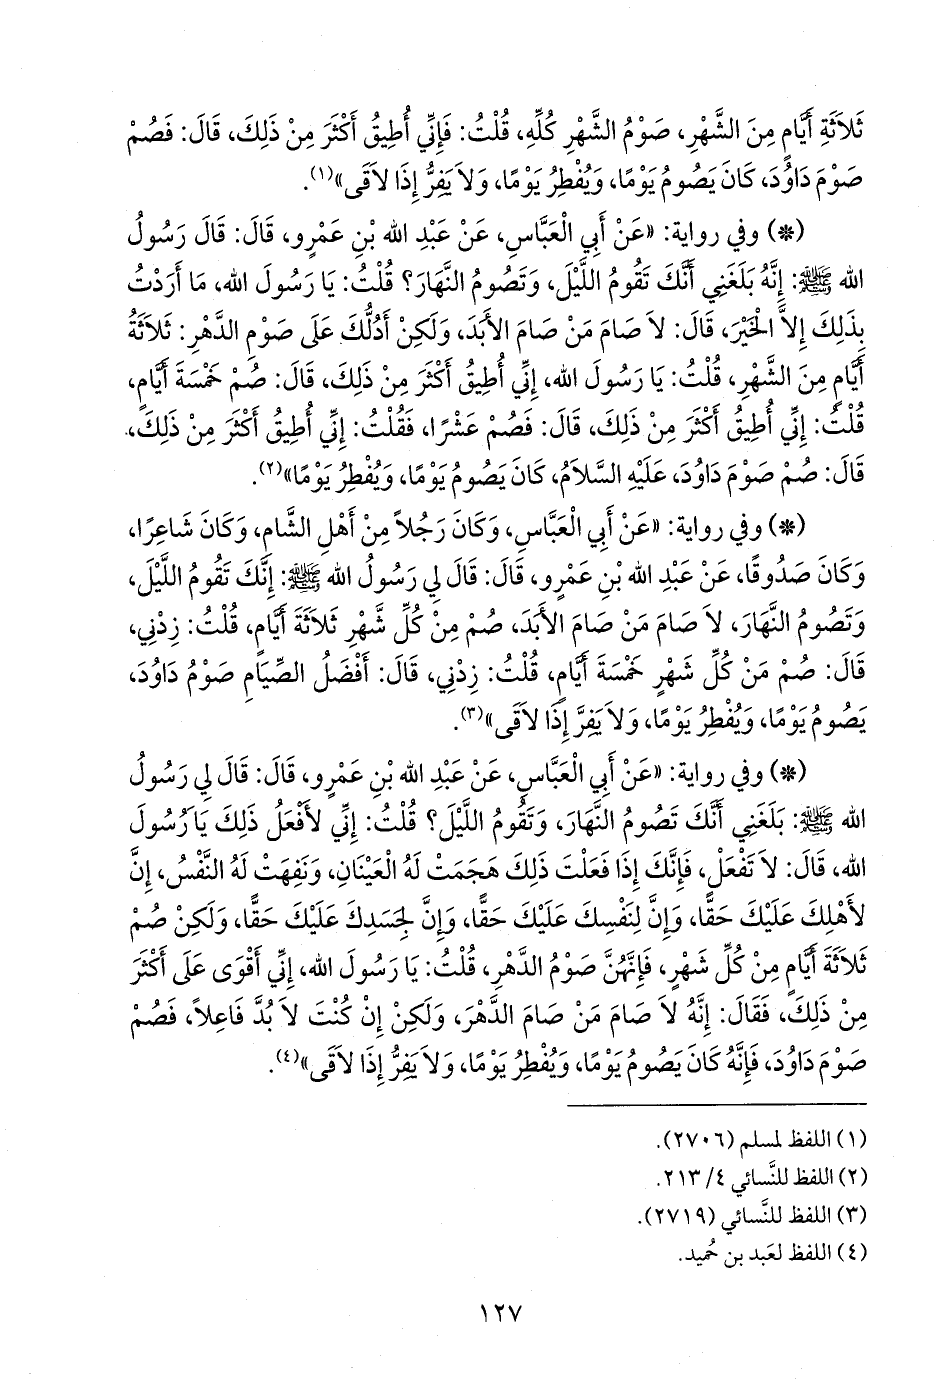 ثَلاَثَةِ أَيَّامٍ مِنَ الشَّهْرِ، صَوْمُ الشَّهْرِ كُلِّهِ، قُلْتُ: فَإِنِّي أُطِيقُ أَكْثَرَ مِنْ ذَلِكَ، قَالَ: فَصُمْ
صَوْمَ دَاوُدَ، كَانَ يَصُومُ يَوْمًا، وَيُفْطِرُ يَوْمًا، وَلاَ يَفِرُّ إِذَا لاَقَى»(١).
(*) وفي رواية: «عَنْ أَبِي الْعَبَّاسِ، عَنْ عَبْدِ الله بْنِ عَمْرٍو، قَالَ: قَالَ رَسُولُ
الله ﷺ: إِنَّهُ بَلَغَنِي أَنَّكَ تَقُومُ اللَّيْلَ، وَتَصُومُ النَّهَارَ؟ قُلْتُ: يَا رَسُولَ الله، مَا أَرَدْتُ
بِذَلِكَ إِلاَّ الْخَيْرَ، قَالَ: لاَ صَامَ مَنْ صَامَ الأَبَدَ، وَلَكِنْ أَدُلُّكَ عَلَى صَوْمِ الدَّهْرِ: ثَلاَثَةُ
أَيَّامٍ مِنَ الشَّهْرِ، قُلْتُ: يَا رَسُولَ الله، إِنِّي أُطِيقُ أَكْثَرَ مِنْ ذَلِكَ، قَالَ: صُمْ خَمْسَةَ أَيَّامٍ،
قُلْتُ: إِنِّي أُطِيقُ أَكْثَرَ مِنْ ذَلِكَ، قَالَ: فَصُمْ عَشْرًا، فَقُلْتُ: إِنِّي أُطِيقُ أَكْثَرَ مِنْ ذَلِكَ،
قَالَ: صُمْ صَوْمَ دَاوُدَ، عَلَيْهِ السَّلاَمُ، كَانَ يَصُومُ يَوْمًا، وَيُفْطِرُ يَوْمًا»(٢).
(*) وفي رواية: «عَنْ أَبِي الْعَبَّاسِ، وَكَانَ رَجُلاً مِنْ أَهْلِ الشَّامِ، وَكَانَ شَاعِرًا،
وَكَانَ صَدُوقًا، عَنْ عَبْدِ الله بْنِ عَمْرٍو، قَالَ: قَالَ لِي رَسُولُ الله ﷺ: إِنَّكَ تَقُومُ اللَّيْلَ،
وَتَصُومُ النَّهَارَ، لاَ صَامَ مَنْ صَامَ الأَبَدَ، صُمْ مِنْ كُلِّ شَهْرٍ ثَلاَثَةَ أَيَّامٍ، قُلْتُ: زِدْنِي،
قَالَ: صُمْ مَنْ كُلِّ شَهْرٍ خَمْسَةَ أَيَّامٍ، قُلْتُ: زِدْنِي، قَالَ: أَفْضَلُ الصِّيَامِ صَوْمُ دَاوُدَ،
يَصُومُ يَوْمًا، وَيُفْطِرُ يَوْمًا، وَلاَ يَفِرَّ إِذَا لاَقَى»(٣).
(*) وفي رواية: «عَنْ أَبِي الْعَبَّاسِ، عَنْ عَبْدِ الله بْنِ عَمْرٍو، قَالَ: قَالَ لِي رَسُولُ
الله ﷺ: بَلَغَنِي أَنَّكَ تَصُومُ النَّهَارَ، وَتَقُومُ اللَّيْلَ؟ قُلْتُ: إِنِّي لأَفْعَلُ ذَلِكَ يَا رَُسُولَ
الله، قَالَ: لاَ تَفْعَلْ، فَإِنَّكَ إِذَا فَعَلْتَ ذَلِكَ هَجَمَتْ لَهُ الْعَيْنَانِ، وَنَفِهَتْ لَهُ النَّفْسُ، إِنَّ
لأَهْلِكَ عَلَيْكَ حَقًّا، وَإِنَّ لِنَفْسِكَ عَلَيْكَ حَقًّا، وَإِنَّ لِجَسَدِكَ عَلَيْكَ حَقًّا، وَلَكِنْ صُمْ
ثَلاَثَةَ أَيَّامٍ مِنْ كُلِّ شَهْرٍ، فَإِنَّهُنَّ صَوْمُ الدَّهْرِ، قُلْتُ: يَا رَسُولَ الله، إِنِّي أَقْوَى عَلَى أَكْثَرَ
مِنْ ذَلِكَ، فَقَالَ: إِنَّهُ لاَ صَامَ مَنْ صَامَ الدَّهْرَ، وَلَكِنْ إِنْ كُنْتَ لاَ بُدَّ فَاعِلاً، فَصُمْ
صَوْمَ دَاوُدَ، فَإِنَّهُ كَانَ يَصُومُ يَوْمًا، وَيُفْطِرُ يَوْمًا، وَلاَ يَفِرُّ إِذَا لاَقَى»(٤).
(١) اللفظ لمسلم (٢٧٠٦).
(٢) اللفظ للنَّسائي ٤/ ٢١٣.
(٣) اللفظ للنَّسائي (٢٧١٩).
(٤) اللفظ لعَبد بن حُميد.
١٢٧